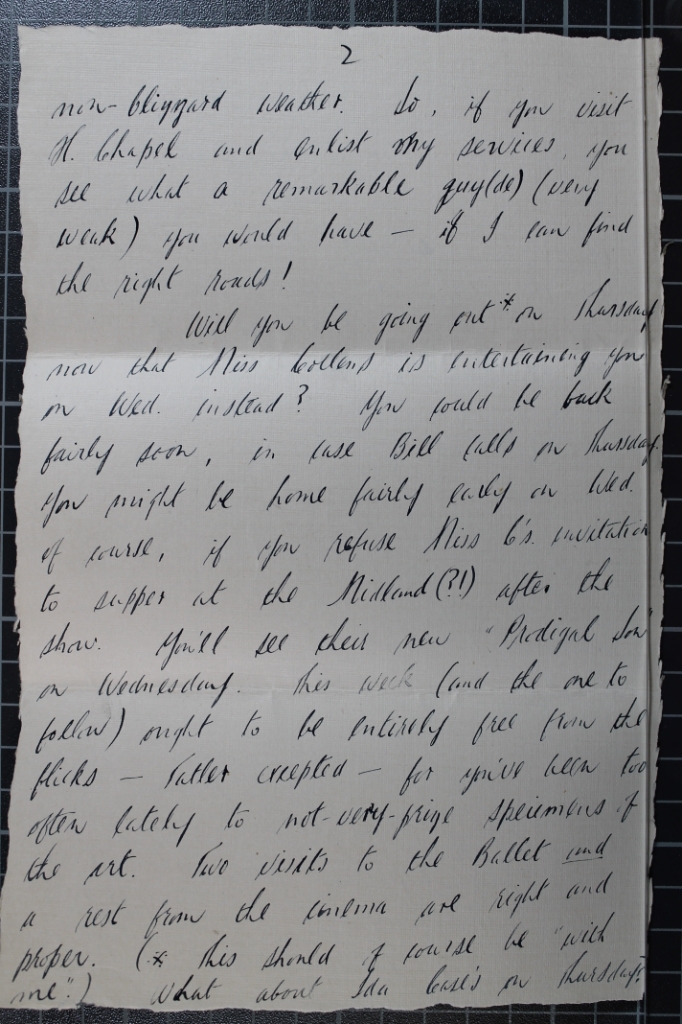 2
non-blizzard weather. So, if you visit
H. Chapel and enlist my services, you
see what a remarkable guy(de) (very
weak) you would have — if I can find
the right roads!
Will you be going out* on Thursday
now that Miss Collens is entertaining you
on Wed. instead? You could be back
fairly soon, in case Bill calls on Thursday.
You might be home fairly early on Wed.
of course, if you refuse Miss C's. invitation
to supper at the Midland (?!) after the
show. You'll see their new "Prodigal Son"
on Wednesday. This week (and the one to
follow) ought to be entirely free from the
flicks — Tatler excepted — for you've been too
often lately to not-very-prize specimens of
the art. Two visits to the Ballet and
a rest from the cinema are right and
proper. (* This should of course be "with
me".) What about Ida Case's on Thursday?